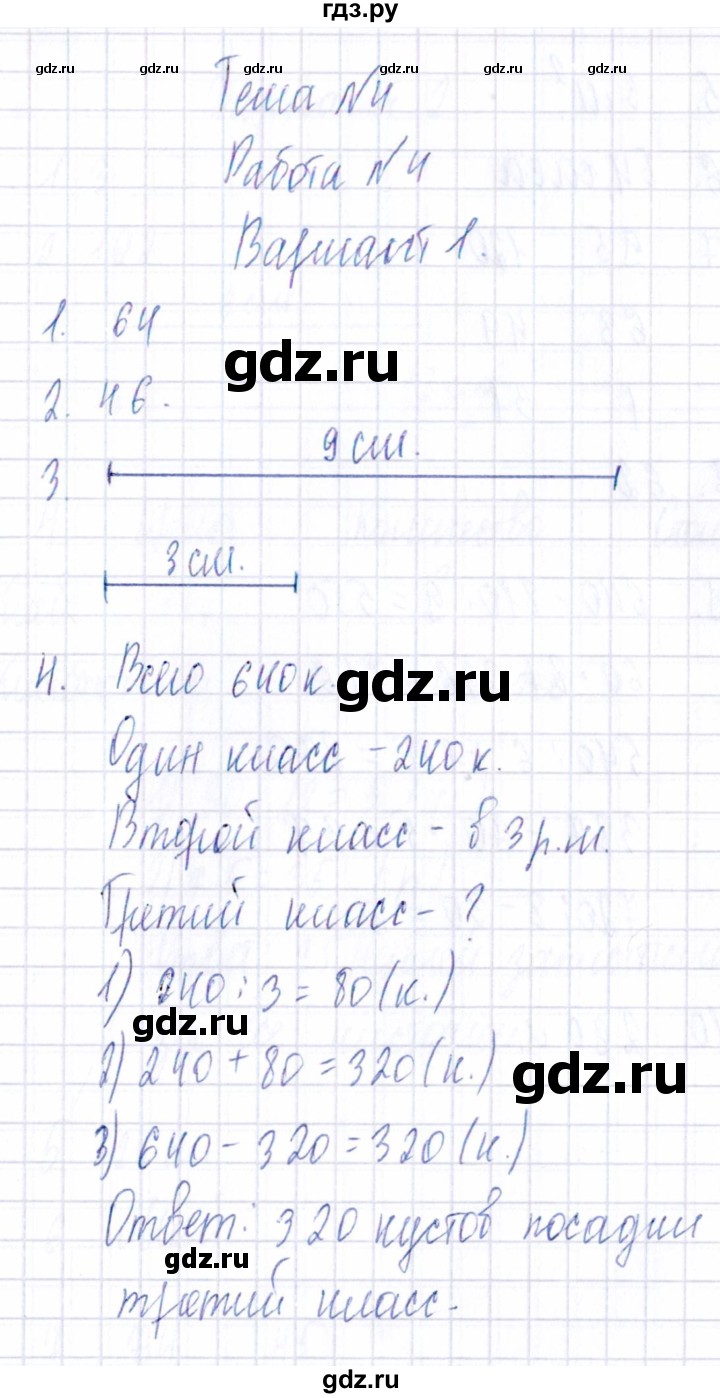 гдз.ру
gdz.ru gdz.ru gdz.ru gdz.ru gdz.ru gdz.ru
Тема №4
Работа №4
Вариант 1.
1. 64
gdz.ru
2. 46.
9 см.
3.
3 см.
4. Всего 640 к.
gdz.ru
Один класс - 240 к.
Второй класс - в 3 р. м.
Третий класс - ?
1) 240 : 3 = 80 (к.)
gdz.ru
2) 240 + 80 = 320 (к.)
gdz.ru
3) 640 - 320 = 320 (к.)
Ответ: 320 кустов посадил
gdz.ru
третий класс.
gdz.ru